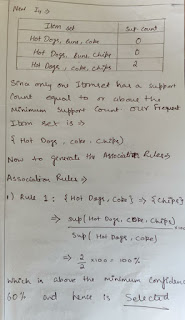 Now I3 ⇒
Item set Sup Count
Hot Dogs, Buns, Coke 0
Hot Dogs, Buns, Chips 0
Hot Dogs, Coke, Chips 2
Since only one Itemset has a support
Count equal to or above the
Minimum Support Count our Frequent
Item set is ⇒
{ Hot Dogs, Coke, Chips}
Now to generate the Association Rules ⇒
Association Rules ⇒
1) Rule 1: {Hot Dogs, Coke} ⇒ {Chips}
⇒ sup(Hot Dogs, Coke, Chips)
Sup(Hot Dogs, Coke)
⇒ 2/2 ×100 = 100%
Which is above the minimum Confidence
60% and hence is Selected